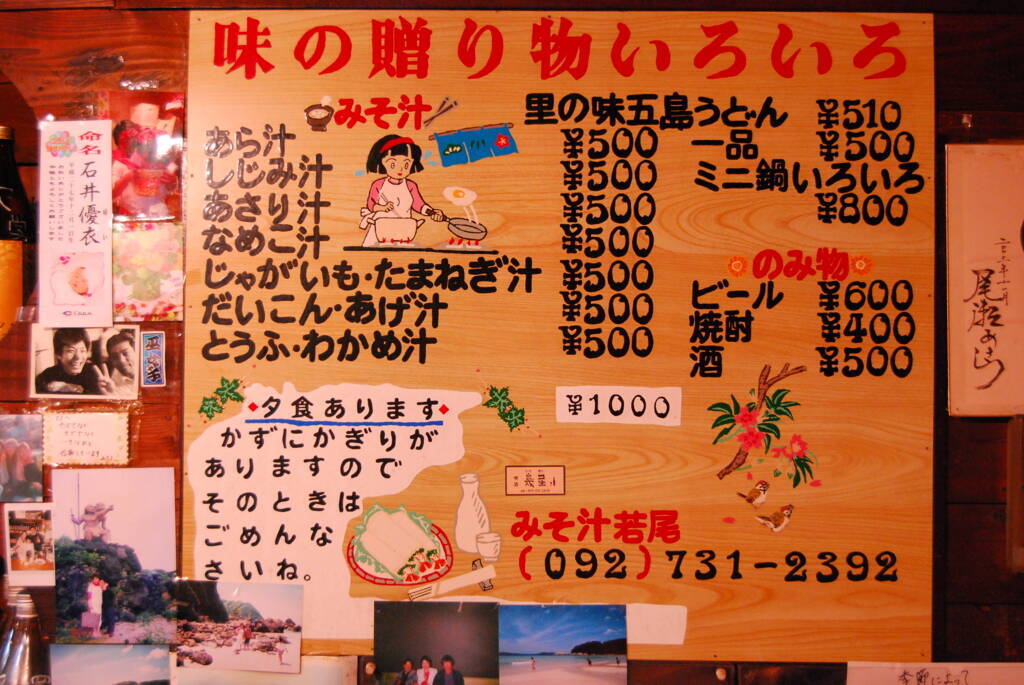 味の贈り物いろいろ
みそ汁
あら汁 ¥500
しじみ汁 ¥500
あさり汁 ¥500
なめこ汁 ¥500
じゃがいも・たまねぎ汁 ¥500
だいこん・あげ汁 ¥500
とうふ・わかめ汁 ¥500
里の味五島うどん ¥510
一品 ¥500
ミニ鍋いろいろ
¥800
のみ物
ビール ¥600
焼酎 ¥400
酒 ¥500
夕食あります ¥1000
かずにかぎりが
ありますので
そのときは
ごめんな
さいね。
みそ汁若尾
(092)731-2392
命名
石井優衣
季節によって